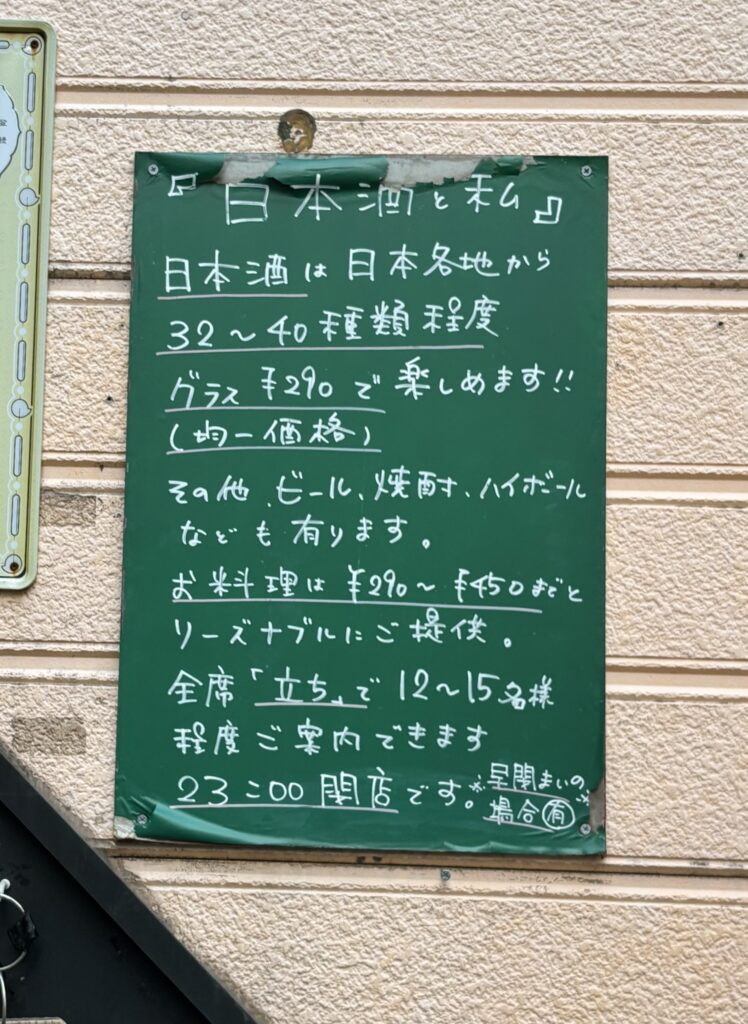 『日本酒と私』
日本酒は日本各地から
32～40種類程度
グラス¥290で楽しめます!!
(均一価格)
その他、ビール、焼酎、ハイボール
なども有ります。
お料理は¥290～¥450までと
リーズナブルにご提供。
全席「立ち」で12～15名様
程度ご案内できます
23:00閉店です。
※早閉まいの※
場合有